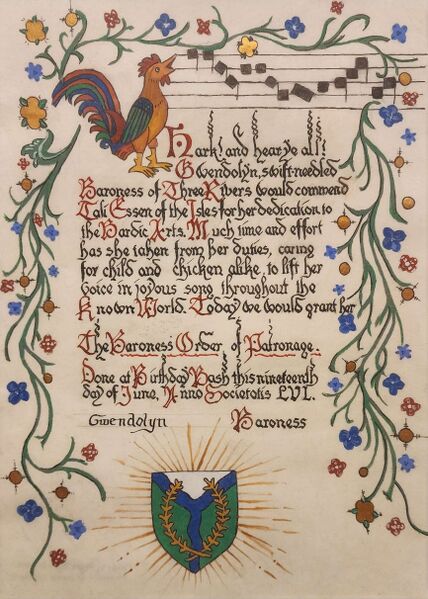 Hark! and hear ye all!
Gwendolyn, swift-needled
Baroness of Three Rivers would commend
Tali Essen of the Isles for her dedication to
the Bardic Arts. Much time and effort
has she taken from her duties, caring
for child and chicken alike, to lift her
voice in joyous song throughout the
Known World. Today we would grant her
The Baroness Order of Patronage.
Done at Birthday Bash this nineteenth
day of June, Anno Societatis LVI.
Gwendolyn Baroness